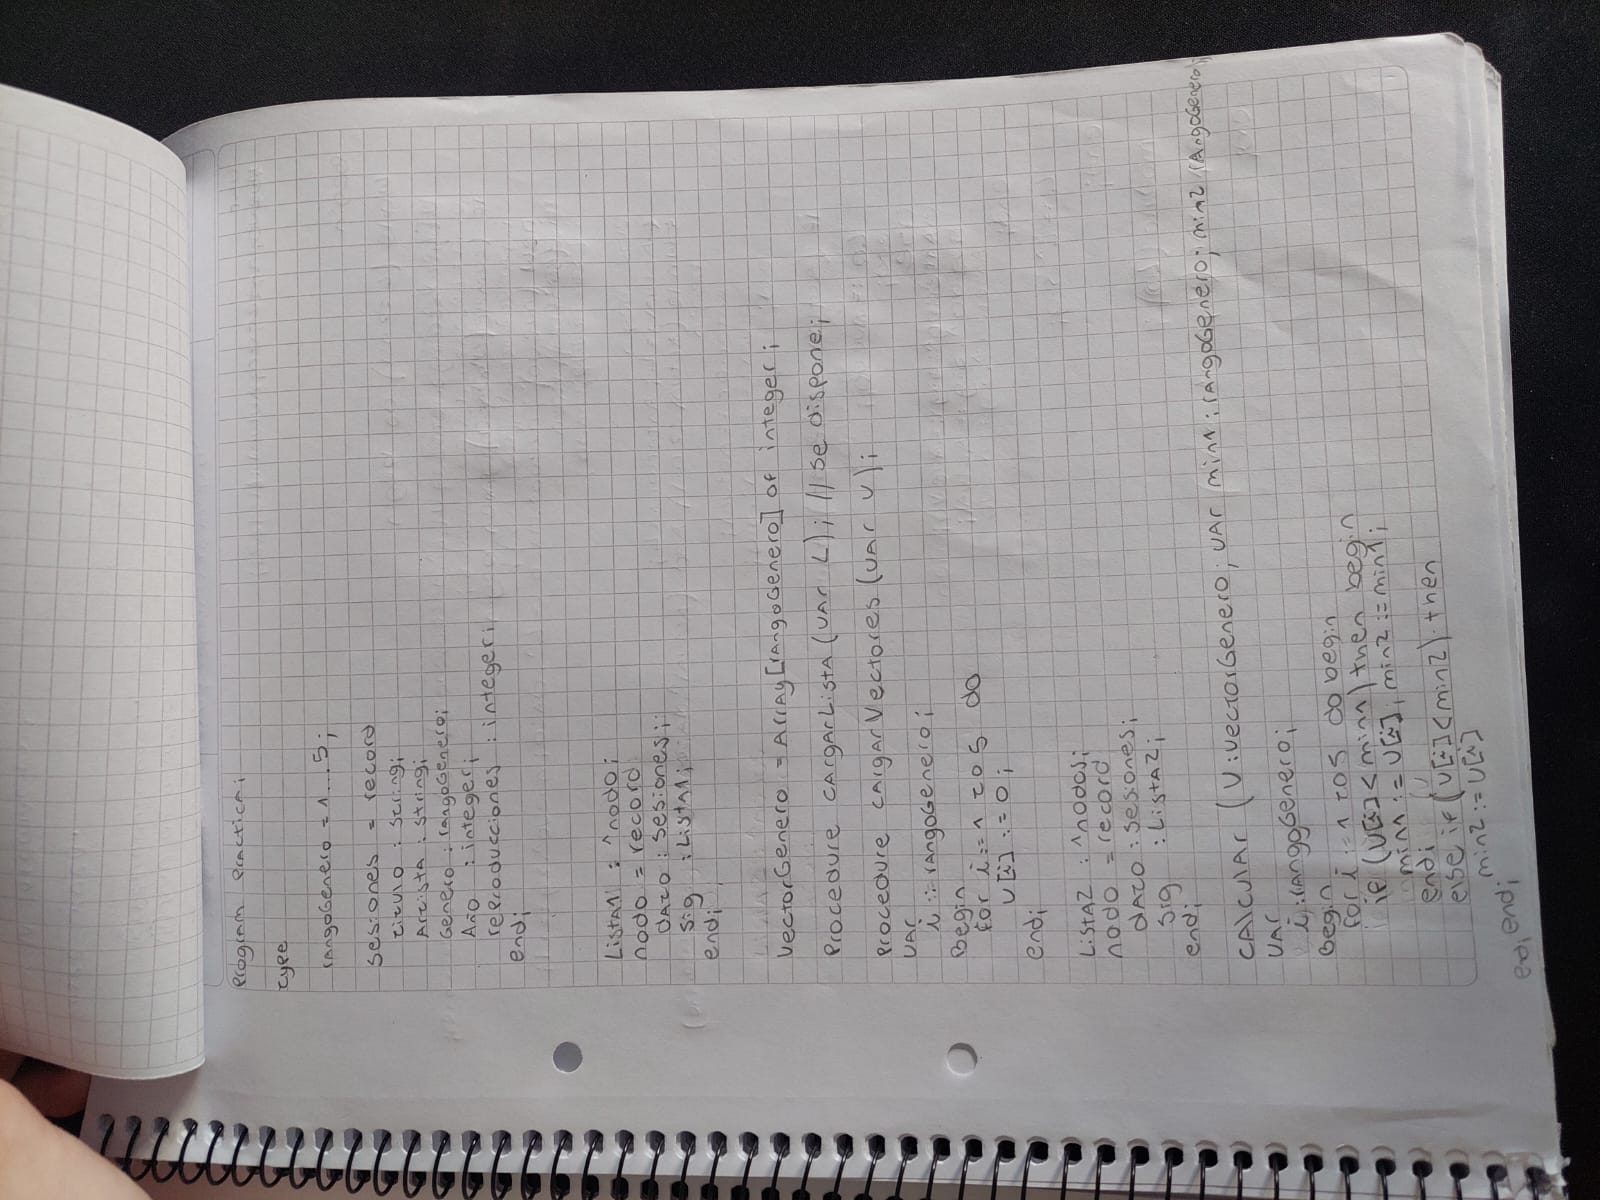 program practica;
type
rangoGenero = 1...5;
sesiones = record
titulo : string;
Artista : string;
Genero : rangoGenero;
Año : integer;
reproducciones : integer;
end;
Lista1 : ^nodo;
nodo = record
dato : sesiones;
sig : Lista1;
end;
vectorGenero = Array[rangoGenero] of integer;
procedure cargarLista (var L); // se dispone;
procedure cargarVectores (var v);
var
i : rangoGenero;
Begin
for i:=1 to 5 do
v[i] := 0;
end;
Lista2 : ^nodos;
nodo = record
dato : sesiones;
sig : Lista2;
end;
calcular (v:vectorGenero; var min1 : rangoGenero; min2 rangoGenero);
var
i : rangoGenero;
Begin
for i := 1 to 5 do begin
if (v[i] < min1) then begin
min1 := v[i]; min2 := min1;
end;
else if (v[i] < min2) then
min2 := v[i]
end;
en;